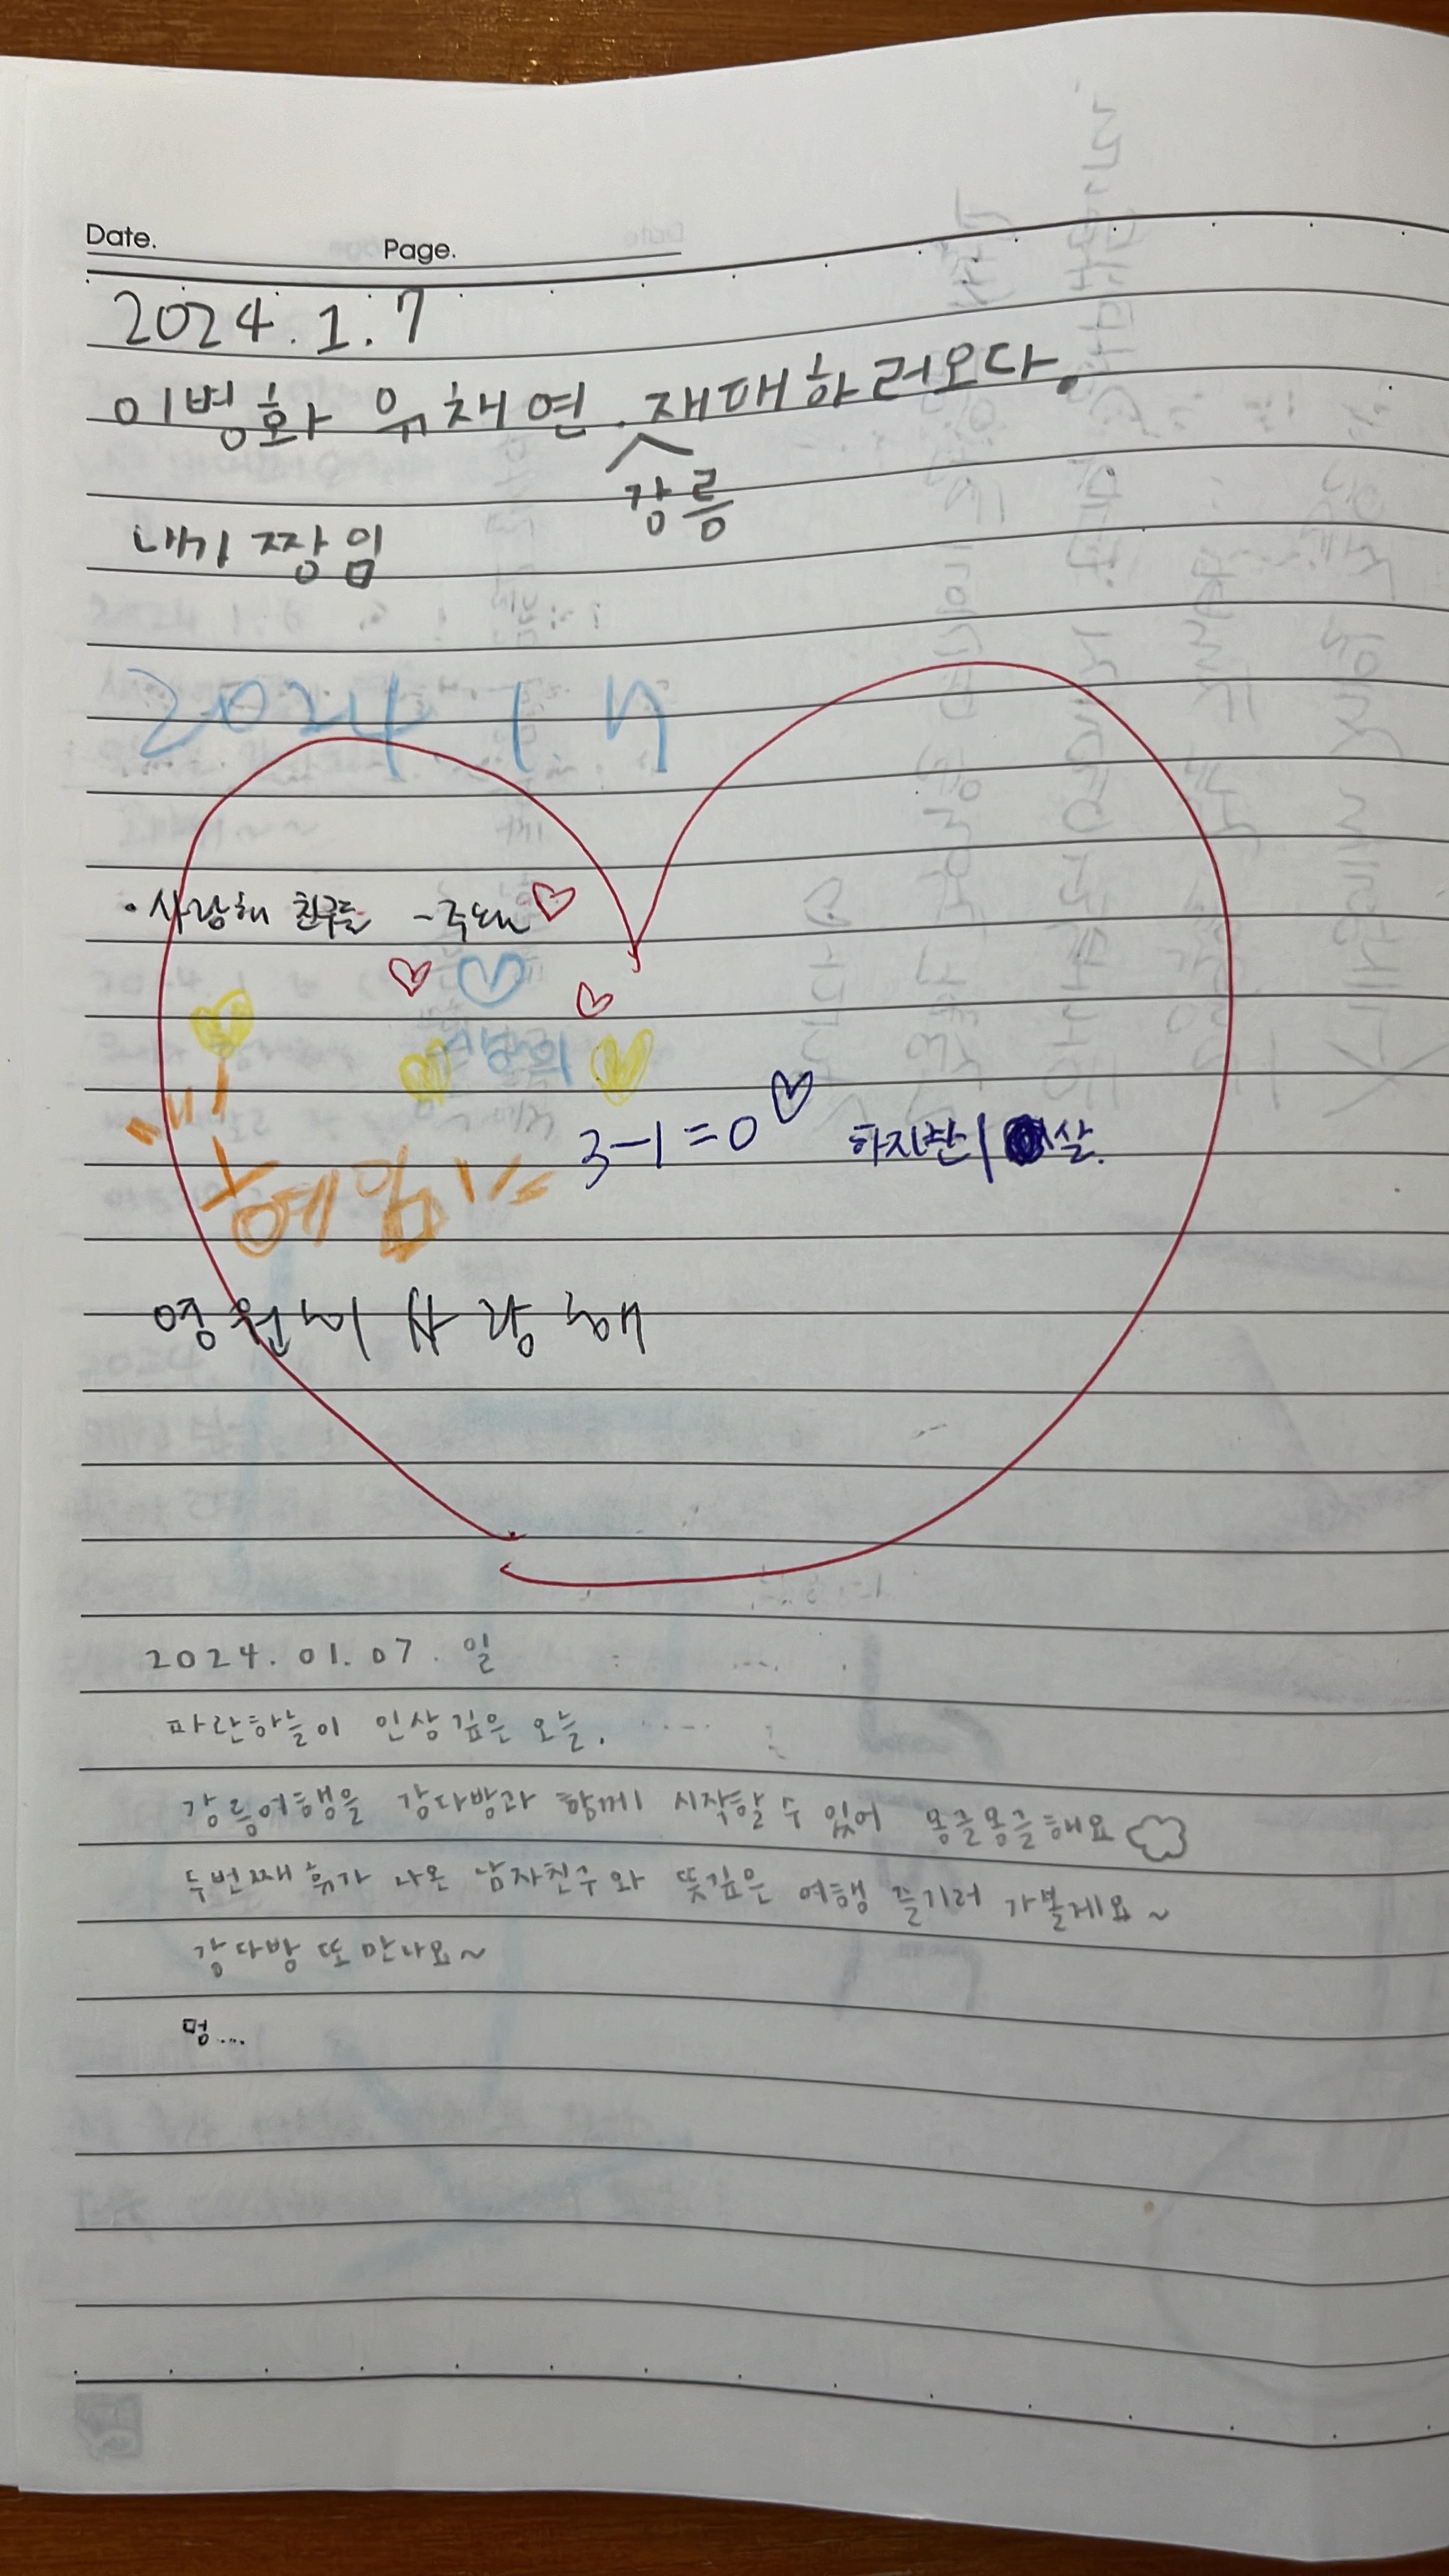 Date. Page.
2024.1.7
이병화 유채연. 재대하러오다.
강릉
내가 짱임
2024 1 7
· 사랑해 친구들 -주
3-1=0 하지만 살.
영원히 사랑해
2024. 01. 07. 일
파란하늘이 인상깊은 오늘.
강릉여행을 강다방과 함께 시작할 수 있어 몽글몽글해요
두번째 휴가 나온 남자친구와 뜻깊은 여행 즐기러 가볼게요~
강다방 또 만나요~
멍...